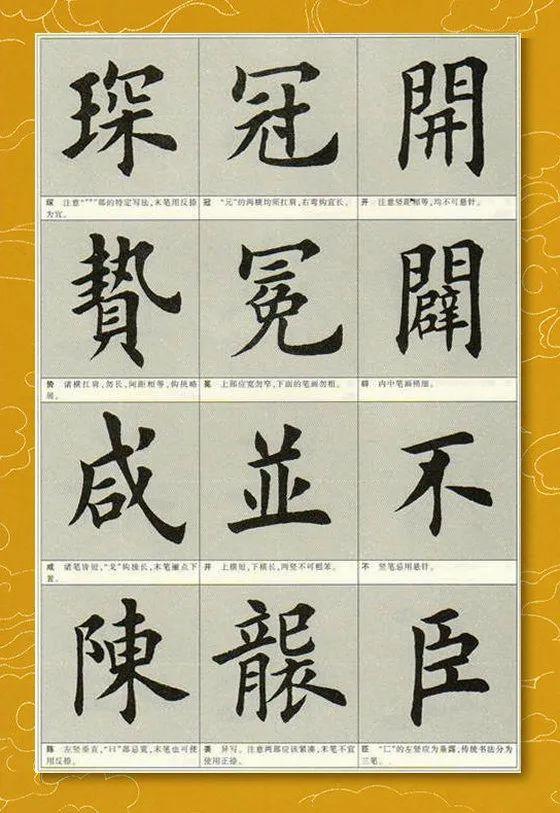 開
开 注意竖距相等,均不可悬针。
闢
辟 内中笔画稍细。
不
不 竖笔忌用悬针。
臣
臣 “匚”的左竖应为垂露,传统书法分为
三笔。
冠
冠 “元”的两横均须扛肩,右弯钩宜长。
冕
冕 上部应宽勿窄,下面的笔画勿粗。
並
并 上横短,下横长,两竖不可粗笨。
襲
袭 异写。注意两部应该紧凑,末笔不宜
使用正捺。
琛
琛 注意“”部的特定写法,末笔用反捺
为宜。
贄
贽 诸横扛肩,勿长,间距相等,钩挑略
咸
咸 诸笔皆短,“戈”钩独长,末笔撇点下
置。
陳
陈 左竖垂直,“曰”部忌宽,末笔也可使
用反捺。